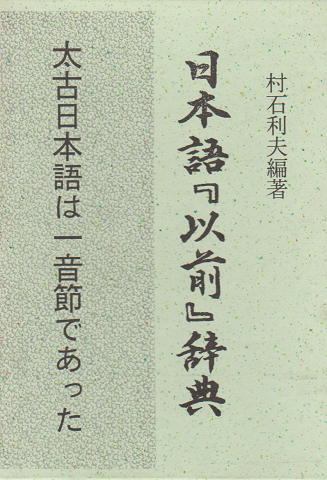 村石利夫編著
日本語『以前』辞典
太古日本語は一音節であった